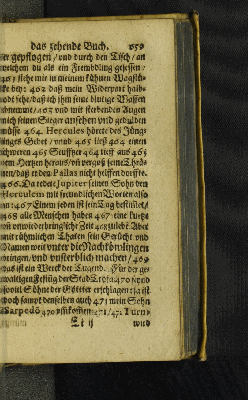 das zehende Buch. 659
er gepflogen / und durch den Tisch / an
welchem du als ein Frembdling gesessen /
stehe mir in meinem kühnen Wagstü-
cke bey: 462 daß mein Widerpart halb-
todt sehe / daß ich ihm seine blutige Waffen
abnemme / 463 und mit sterbenden Augen
mich seinen Sieger ansehen und gedulden
müsse 464. Hercules hörete des Jüng-
lings Gebet / unnd 465 ließ 404 einen
schweren 463 Seufftzer 464 tieff aus 465
dem Hertzen heraus / und vergoß seine Thrä-
nen / daß er dem Pallas nicht helffen dorffte.
466. Da redete Jupiter seinen Sohn den
Herculem mit freundlichen Worten also
an: 467 Einem jeden ist sein Tag bestimmet /
468 alle Menschen haben 467 eine kurtze
und unwiederbringliche Zeit 468 zu leben Aber
mit rühmlichen Thaten sein Gerücht und
Namen weit unter die Nachkömlingen
bringen / und unsterblich machen / 469
das ist ein Werck der Tugend. Für der ge-
waltigen Festung der Stadt Troja 470 sind
soviel Söhne der Götter erschlagen: ja ist
noch sampt denselben auch 471 mein Sohn
Sarpedo 470 umbkommen: 471 / 471 Turn
Et ij wird